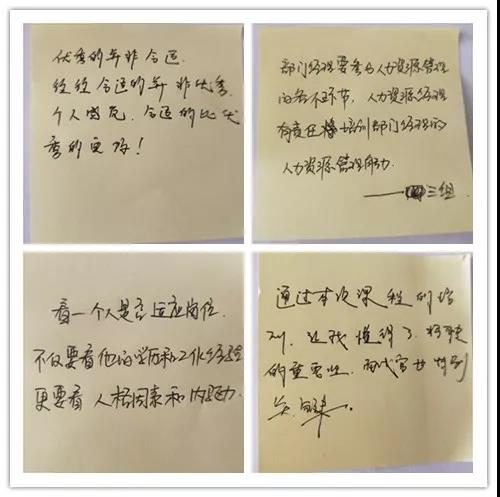 优秀的并非合适.
往往合适的并非优秀.
个人感觉.合适的比优
秀的更好!
部门经理要参与人力资源管理
的各个环节,人力资源经理
有责任培训部门经理的
人力资源管理能力.
——三组
看一个人是否适应岗位,
不仅要看他的学历和工作经验
更要看人格因素和内驱力.
通过本次课程的培
训,让我懂得了
的重要性.